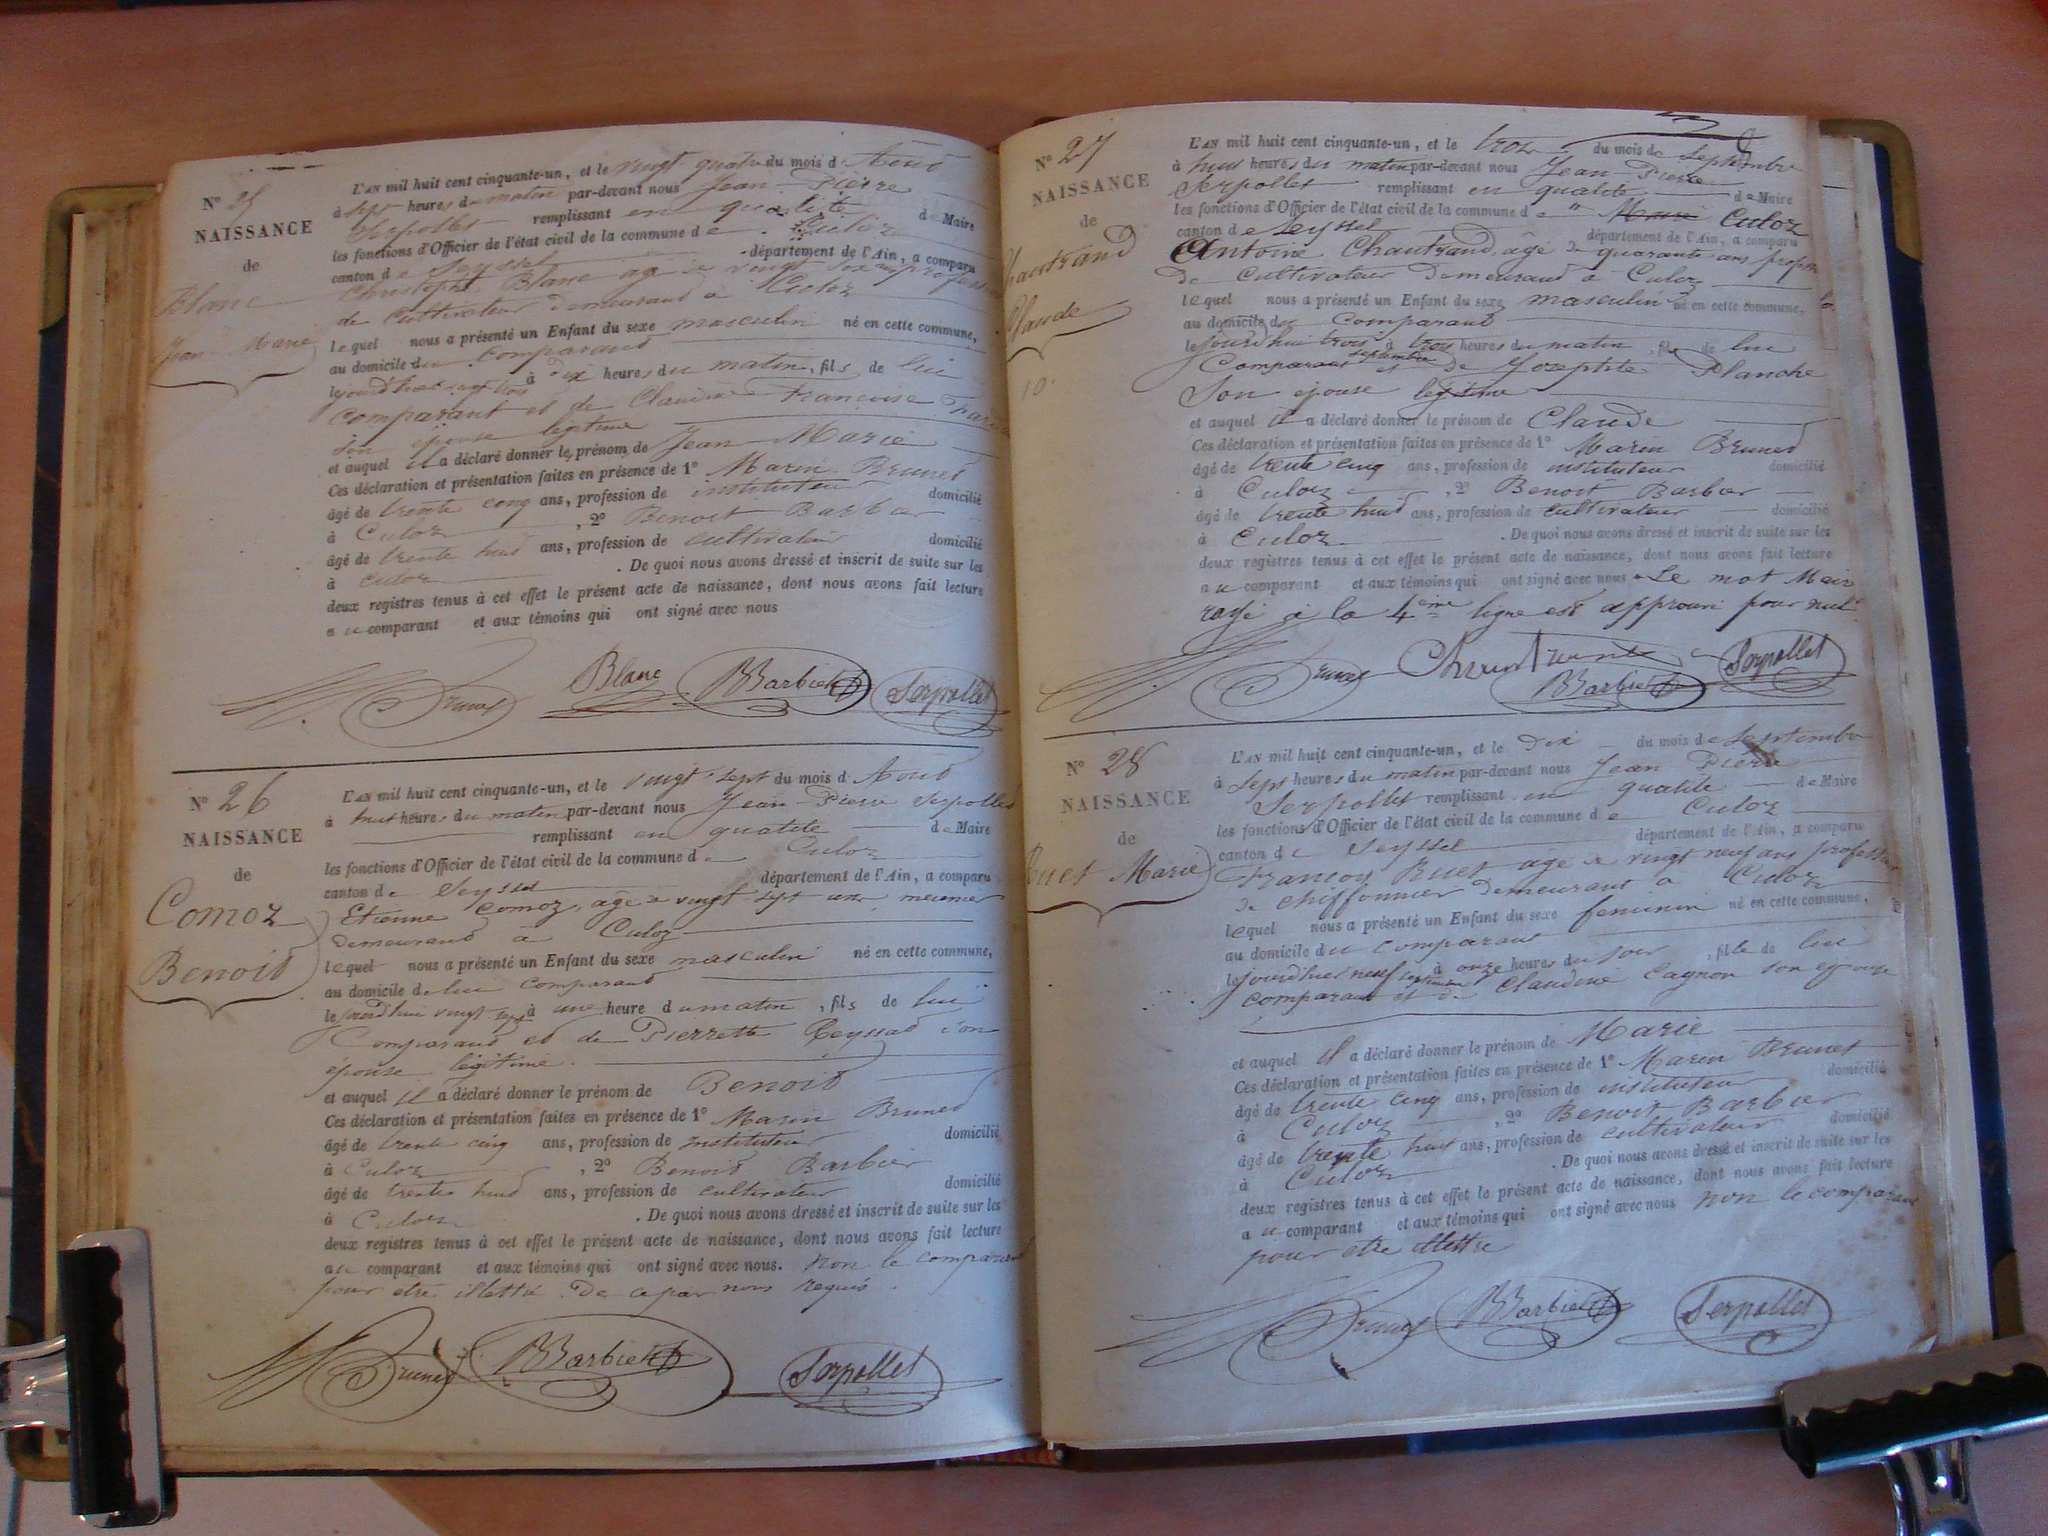 N° 25
NAISSANCE
de
Blanc
Jean Marie
L'AN mil huit cent cinquante-un, et le vingt quatre du mois d Aoud
à sept heures du matin par-devant nous Jean-Pierre
Serpollet remplissant en qualité de Maire
les fonctions d'Officier de l'état civil de la commune de Culoz
canton de Seyssel département de l'Ain, a comparu
Christophe Blanc agé de vingt ans profession
de cultivateur demeurand à Culoz
lequel nous a présenté un Enfant du sexe masculin né en cette commune,
au domicile du comparand
le jourd'hui vingt trois à dix heures du matin, fils de lui
comparant et de Claudine Françoise
son épouse légitime
et auquel il a déclaré donner le prénom de Jean Marie
Ces déclaration et présentation faites en présence de 1° Marin Brunet
âgé de trente cinq ans, profession de instituteur domicilié
à Culoz , 2° Benoit Barbier
âgé de trente huid ans, profession de cultivateur domicilié
à Culoz . De quoi nous avons dressé et inscrit de suite sur les
deux registres tenus à cet effet le présent acte de naissance, dont nous avons fait lecture
au comparant et aux témoins qui ont signé avec nous
Brunet Blanc BBarbier Serpollet
N° 26
NAISSANCE
de
Comoz
Benoid
L'AN mil huit cent cinquante-un, et le vingt-sept du mois d Aoud
à huit heures du matin par-devant nous Jean-Pierre Serpollet
remplissant en qualité de Maire
les fonctions d'Officier de l'état civil de la commune de Culoz
canton de Seyssel département de l'Ain, a comparu
Etienne Comoz, agé de vingt-sept ans meunier
demeurand à Culoz
lequel nous a présenté un Enfant du sexe masculin né en cette commune,
au domicile de lui comparand
le jourd'hui vingt sept à une heure du matin, fils de lui
Comparand et de Pierrette Teyssad son
épouse légitime.
et auquel il a déclaré donner le prénom de Benoid
Ces déclaration et présentation faites en présence de 1° Marin Bruned
âgé de trente cinq ans, profession de instituteur domicilié
à Culoz , 2° Benoid Barbier
âgé de trente huid ans, profession de cultivateur domicilié
à Culoz . De quoi nous avons dressé et inscrit de suite sur les
deux registres tenus à cet effet le présent acte de naissance, dont nous avons fait lecture
au comparant et aux témoins qui ont signé avec nous. non le comparand
pour etre illettré. De ce par nous requis.
Brunet BBarbier Serpollet
N° 27
NAISSANCE
de
Chautrand
Claude
10.
L'AN mil huit cent cinquante-un, et le trois du mois de septembre
à huit heures du matin par-devant nous Jean-Pierre
Serpollet remplissant en qualité de Maire
les fonctions d'Officier de l'état civil de la commune de Maire Culoz
canton de Seyssel département de l'Ain, a comparu
Antoine Chautrand, âgé de quarante ans
de cultivateur demeurand à Culoz
lequel nous a présenté un Enfant du sexe masculin né en cette commune,
au domicile du comparand
le jourd'hui trois septembre à trois heures du matin, fils de lui
Comparant et de Josephte Planche
Son épouse légitime
et auquel il a déclaré donner le prénom de Claude
Ces déclaration et présentation faites en présence de 1° Marin Bruned
âgé de trente cinq ans, profession de instituteur domicilié
à Culoz , 2° Benoit Barbier
âgé de trente huid ans, profession de cultivateur domicilié
à Culoz . De quoi nous avons dressé et inscrit de suite sur les
deux registres tenus à cet effet le présent acte de naissance, dont nous avons fait lecture
au comparant et aux témoins qui ont signé avec nous. Le mot Mair
rayé à la 4ème ligne est approuvé pour nul.
Brunet BBarbier Serpollet
N° 28
NAISSANCE
de
Buet Marie
L'AN mil huit cent cinquante-un, et le dix du mois de septembre
à sept heures du matin par-devant nous Jean Pierre
Serpollet remplissant en qualité de Maire
les fonctions d'Officier de l'état civil de la commune de Culoz
canton de Seyssel département de l'Ain, a comparu
François Buet agé de vingt neuf ans profession
de chiffonnier demeurant à Culoz
lequel nous a présenté un Enfant du sexe feminin né en cette commune,
au domicile du comparant
le jourd'hui neuf septembre à onze heures du soir, fille de lui
comparant et de Claudine Cagnon son epouse
et auquel il a déclaré donner le prénom de Marie
Ces déclaration et présentation faites en présence de 1° Marin Brunet
âgé de trente cinq ans, profession de instituteur domicilié
à Culoz , 2° Benoit Barbier
âgé de trente huit ans, profession de cultivateur domicilié
à Culoz . De quoi nous avons dressé et inscrit de suite sur les
deux registres tenus à cet effet le présent acte de naissance, dont nous avons fait lecture
au comparant et aux témoins qui ont signé avec nous non le comparant
pour etre illettre
Brunet BBarbier Serpollet